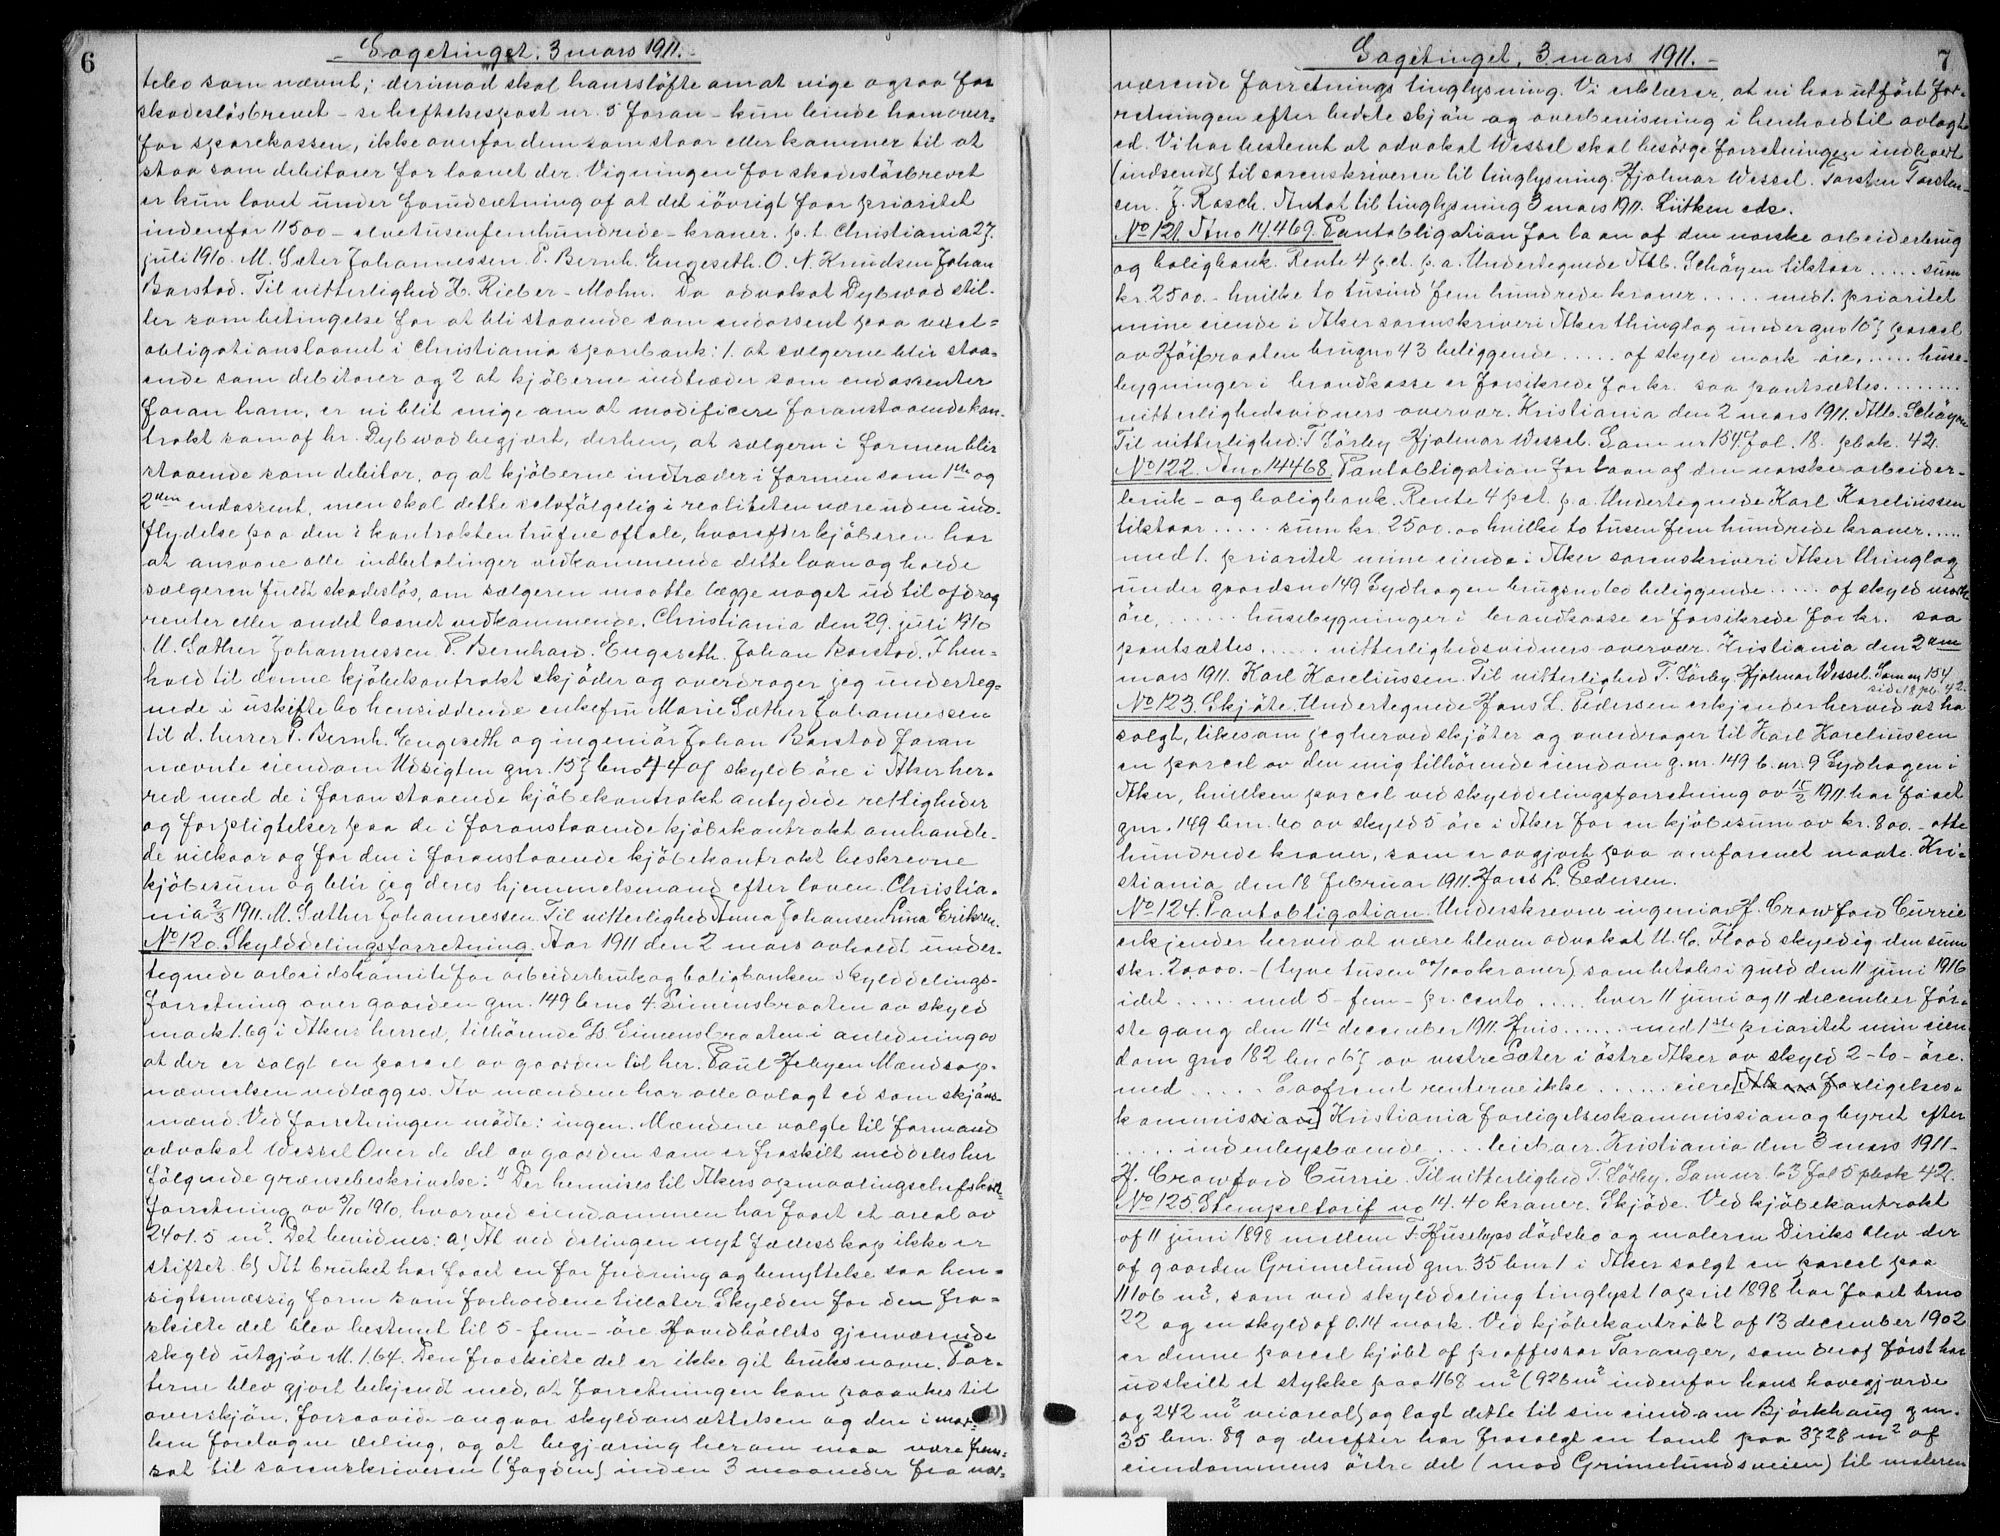 6
Sagetinget, 3 mars 1911.
tebo som nævnt; derimod skal hans løfte om at vige ogsaa for
skadesløsbrevet - se heftelsespost nr. 5 foran - kun binde ham over-
for sparekassen, ikke overfor dem som staar eller kommer til at
staa som debitorer for laanet der. Vigningen for skadesløsbrevet
er kun lovet under forudsætning af at det iøvrigt faar prioritet
indenfor 11500 - elvetusenfemhundrede - kroner. p.t. Christiania 27.
juli 1910. M. Sæter Johannessen. P. Bernh. Engeseth. O. N. Knudsen Johan
Barstad. Til vitterlighed H. Rieber-Mohn. Da advokat Dybwad stil-
ler som betingelse for at bli staaende som endossent paa vexel-
obligationslaanet i Christiania sparebank: 1. at sælgerne blir staa-
ende som debitorer og 2 at kjøberne indtræder som endossenter
foran ham, er vi blit enige om at modificere foranstaaende kon-
trakt som af hr. Dybwad begjært, derhen, at sælgern i formen blir
staaende som debitor, og at kjøberne indtræder i formen som 1ste og
2den endossent, men skal dette selvfølgelig i realiteten være uden ind-
flydelse paa den i kontrakten trufne aftale, hvorefter kjøberen har
at ansvare alle indbetalinger vedkommende dette laan og holde
sælgeren fuldt skadesløs, om sælgeren maatte lægge noget ud til afdrag
renter eller andet laanet vedkommende. Christiania den 29. juli 1910
M. Sæther Johannessen P. Bernhard. Engeseth. Johan Barstad. I hen-
hold til denne kjøbekontrakt skjøder og overdrager jeg underteg-
nede i uskiftebo hensiddende enkefru Marie Sæther Johannessen
til d. herrer P. Bernh. Engeseth og ingeniør Johan Barstad foran
nævnte eiendom Udsigten gnr. 157 bno 74 af skyld 6 øre i Aker her-
red med de i foran staaende kjøbekontrakt antydede rettigheder
og forpligtelser paa de i foranstaaende kjøbekontrakt omhandle-
de vilkaar og for den i foranstaaende kjøbekontrakt beskrevne
kjøbesum og blir jeg deres hjemmelsmand efter loven. Christia-
nia 2/3 1911. M. Sæther Johannessen. Til vitterlighed Anna Johansen Lina Eriksen.
No 120. Skylddelingsforretning. Aar 1911 den 2 mars avholdt under-
tegnede arbeidskomite for arbeiderbruk og boligbanken skylddelings-
forretning over gaarden gnr. 149 bno 4. Simensbraaten av skyld
mark 1.69 i Akers herred, tilhørende Simensbraaten i anledning av
at der er solgt en parcel av gaarden til her. Paul Heyen Mændsop-
nævnelsen vedlægges. Av mændene har alle avlagt ed som skjøns-
mænd. Ved forretningen mødte: ingen. Mændene valgte til formand
advokat Wessel Over de del av gaarden som er fraskilt meddeles her
følgende grænsebeskrivelse: "Der henvises til Akers opmaalingschefs kart-
forretning av 5/10 1910, hvorved eiendommen har faaet et areal av
2401.5 m². Det bevidnes: a) At ved delingen nyt fællesskap ikke er
stiftet. b) At bruket har faaet en for fredning og benyttelse saa hen-
sigtsmæssig form som forholdene tillater. Skylden for den fra-
skilte del blev bestemt til 5 - fem - øre. Hovedbøllets gjenværende
skyld utgjør M. 1.64. Den fraskilte del er ikke git bruksnavn. Par-
terne blev gjort bekjendt med, at forretningen kan paaankes til
overskjøn, forsaavidt angaar skyldansættelsen og den i mar-
ken foretagne deling, og at begjæring herom maa være frem-
sat til sorenskriveren (fogden) inden 3 maaneder fra nær-
7
Sagetinget, 3 mars 1911.
værende forretnings tinglysning. Vi erklærer, at vi har utført for-
retningen efter bedste skjøn og overbevisning i henhold til avlagt
ed. Vi har bestemt at advokat Wessel skal besørge forretningen indbrakt
(indsendt) til sorenskriveren til tinglysning. Hjalmar Wessel. Torsten Torsten-
sen. J. Rasch. Antat til tinglysning 3 mars 1911. Lütken eds.
No 121. Ano 14469. Pantobligation for laan af den norske arbeiderbrug
og boligbank. Rente 4 p.ct. p.a. Undertegnede Alb. Schøyen tilstaar ..... sum
kr. 2500.- hvilke to tusind fem hundrede kroner ..... med 1. prioritet
mine eiende i Aker sorenskriveri Aker thinglag under gno 107 parcel
av Høibraaten brugno 43 beliggende ..... af skyld mark øre, ..... huse-
bygninger i brandkasse er forsikrede for kr. saa pantsættes ........
vitterlighedsvidners overvær. Kristiania den 2 mars 1911. Alb. Schøyen
Til vitterlighed: T Sørby Hjalmar Wessel. Sam nr 154 fol. 18. pbok. 42.
No 122. Ano 14468. Pantobligation for laan af den norske arbeider-
bruk- og boligbank. Rente 4 pct. p.a. Undertegnede Karl Kareliussen
tilstaar ..... sum kr. 2500.00 hvilke to tusen fem hundrede kroner .....
med 1. prioritet mine eiende i Aker sorenskriveri Aker thinglag
under gaardsno 149 Sydhagen brugsno 60 beliggende ..... af skyld mark
øre, ....... husebygninger i brandkasse er forsikrede for kr. saa
pantsættes ..... vitterlighedsvidners overvær. Kristiania den 2den
mars 1911. Karl Kareliussen. Til vitterlighed T. Sørby Hjalmar Wessel. Sam nr 154
side 18 pb. 42.
No 123. Skjøte. Undertegnede Hans L. Pedersen erkjender herved at ha
solgt, likesom jeg herved skjøter og overdrager til Karl Kareliussen
en parcel av den mig tilhørende eiendom g.nr. 149 b.nr. 9 Sydhagen i
Aker, hvilken parcel ved skylddelingsforretning av 15/2 1911. har faaet
gnr. 149 bnr. 60 av skyld 5 øre i Aker for en kjøbesum av kr. 800.- otte
hundrede kroner, som er avgjort paa omforenet maate. Kri-
stiania den 18 februar 1911. Hans L. Pedersen.
No 124. Pantobligation. Underskrevne ingeniør H. Crawford Currie
erkjender herved at være bleven advokat U. C. Flood skyldig den sum
skr. 20000.- (tyve tusen 00/100 kroner) som betales i guld den 11 juni 1916
idet ..... med 5 - fem - pr. cento ..... hver 11 juni og 11 december før-
ste gang den 11te december 1911. Hvis ...... med 1ste prioritet min eien
dom gno 182 bno 67 av vestre Sæter i østre Aker av skyld 2 - to - øre.
med ..... Saafremt renterne ikke ...... eiere [Aker forligelses-
kommission] Kristiania forligelseskommission og byret efter
..... indenbysboende .... leieboer. Kristiania den 3 mars 1911.
H. Crawford Currie. Til vitterlighed T. Sørby. Sam nr. 63 fol 5 pbok 42.
No 125. Stempeltarif no 14. 40 kroner. Skjøde. Ved kjøbekontrakt
af 11 juni 1898 mellem T. Husebyes dødsbo og maleren Diriks blev der
af gaarden Grimelund gnr. 35 bnr 1 i Aker solgt en parcel paa
11106 m², som ved skylddeling tinglyst 1 april 1898 har faaet brno
22 og en skyld af 0.14 mark. Ved kjøbekontrakt af 13 december 1902
er denne parcel kjøbt af proffessor Taranger, som deraf først har
udskilt et stykke paa 1168 m² (926 m² indenfor hans havegjærde
og 242 m² veiareal) og lagt dette til sin eiendom Bjørkhaug gnr.
35 bnr. 89 og derefter har frasolgt en tomt paa 3728 m² af
eiendommens østre del (mod Grimelundsveien) til maleren